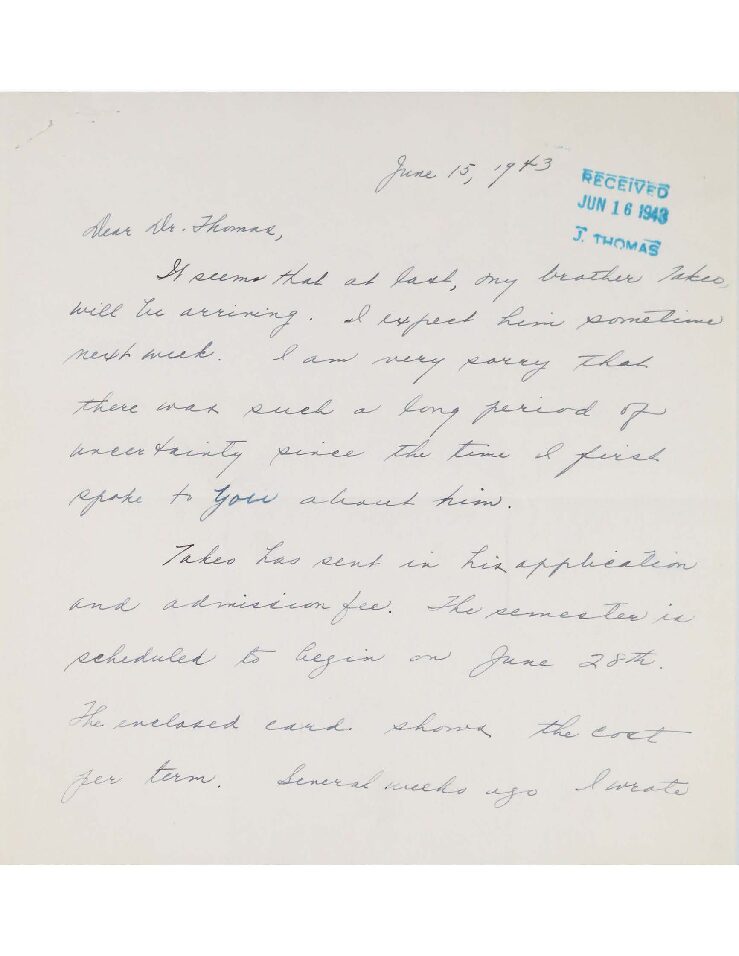 June 15, 1943
RECEIVED
JUN 16 1943
J. THOMAS
Dear Dr. Thomas,
It seems that at last, my brother Takeo,
will be arriving. I expect him sometime
next week. I am very sorry that
there was such a long period of
uncertainty since the time I first
spoke to you about him.
Takeo has sent in his application
and admission fee. The semester is
scheduled to begin on June 28th.
The enclosed card shows the cost
per term. Several weeks ago I wrote